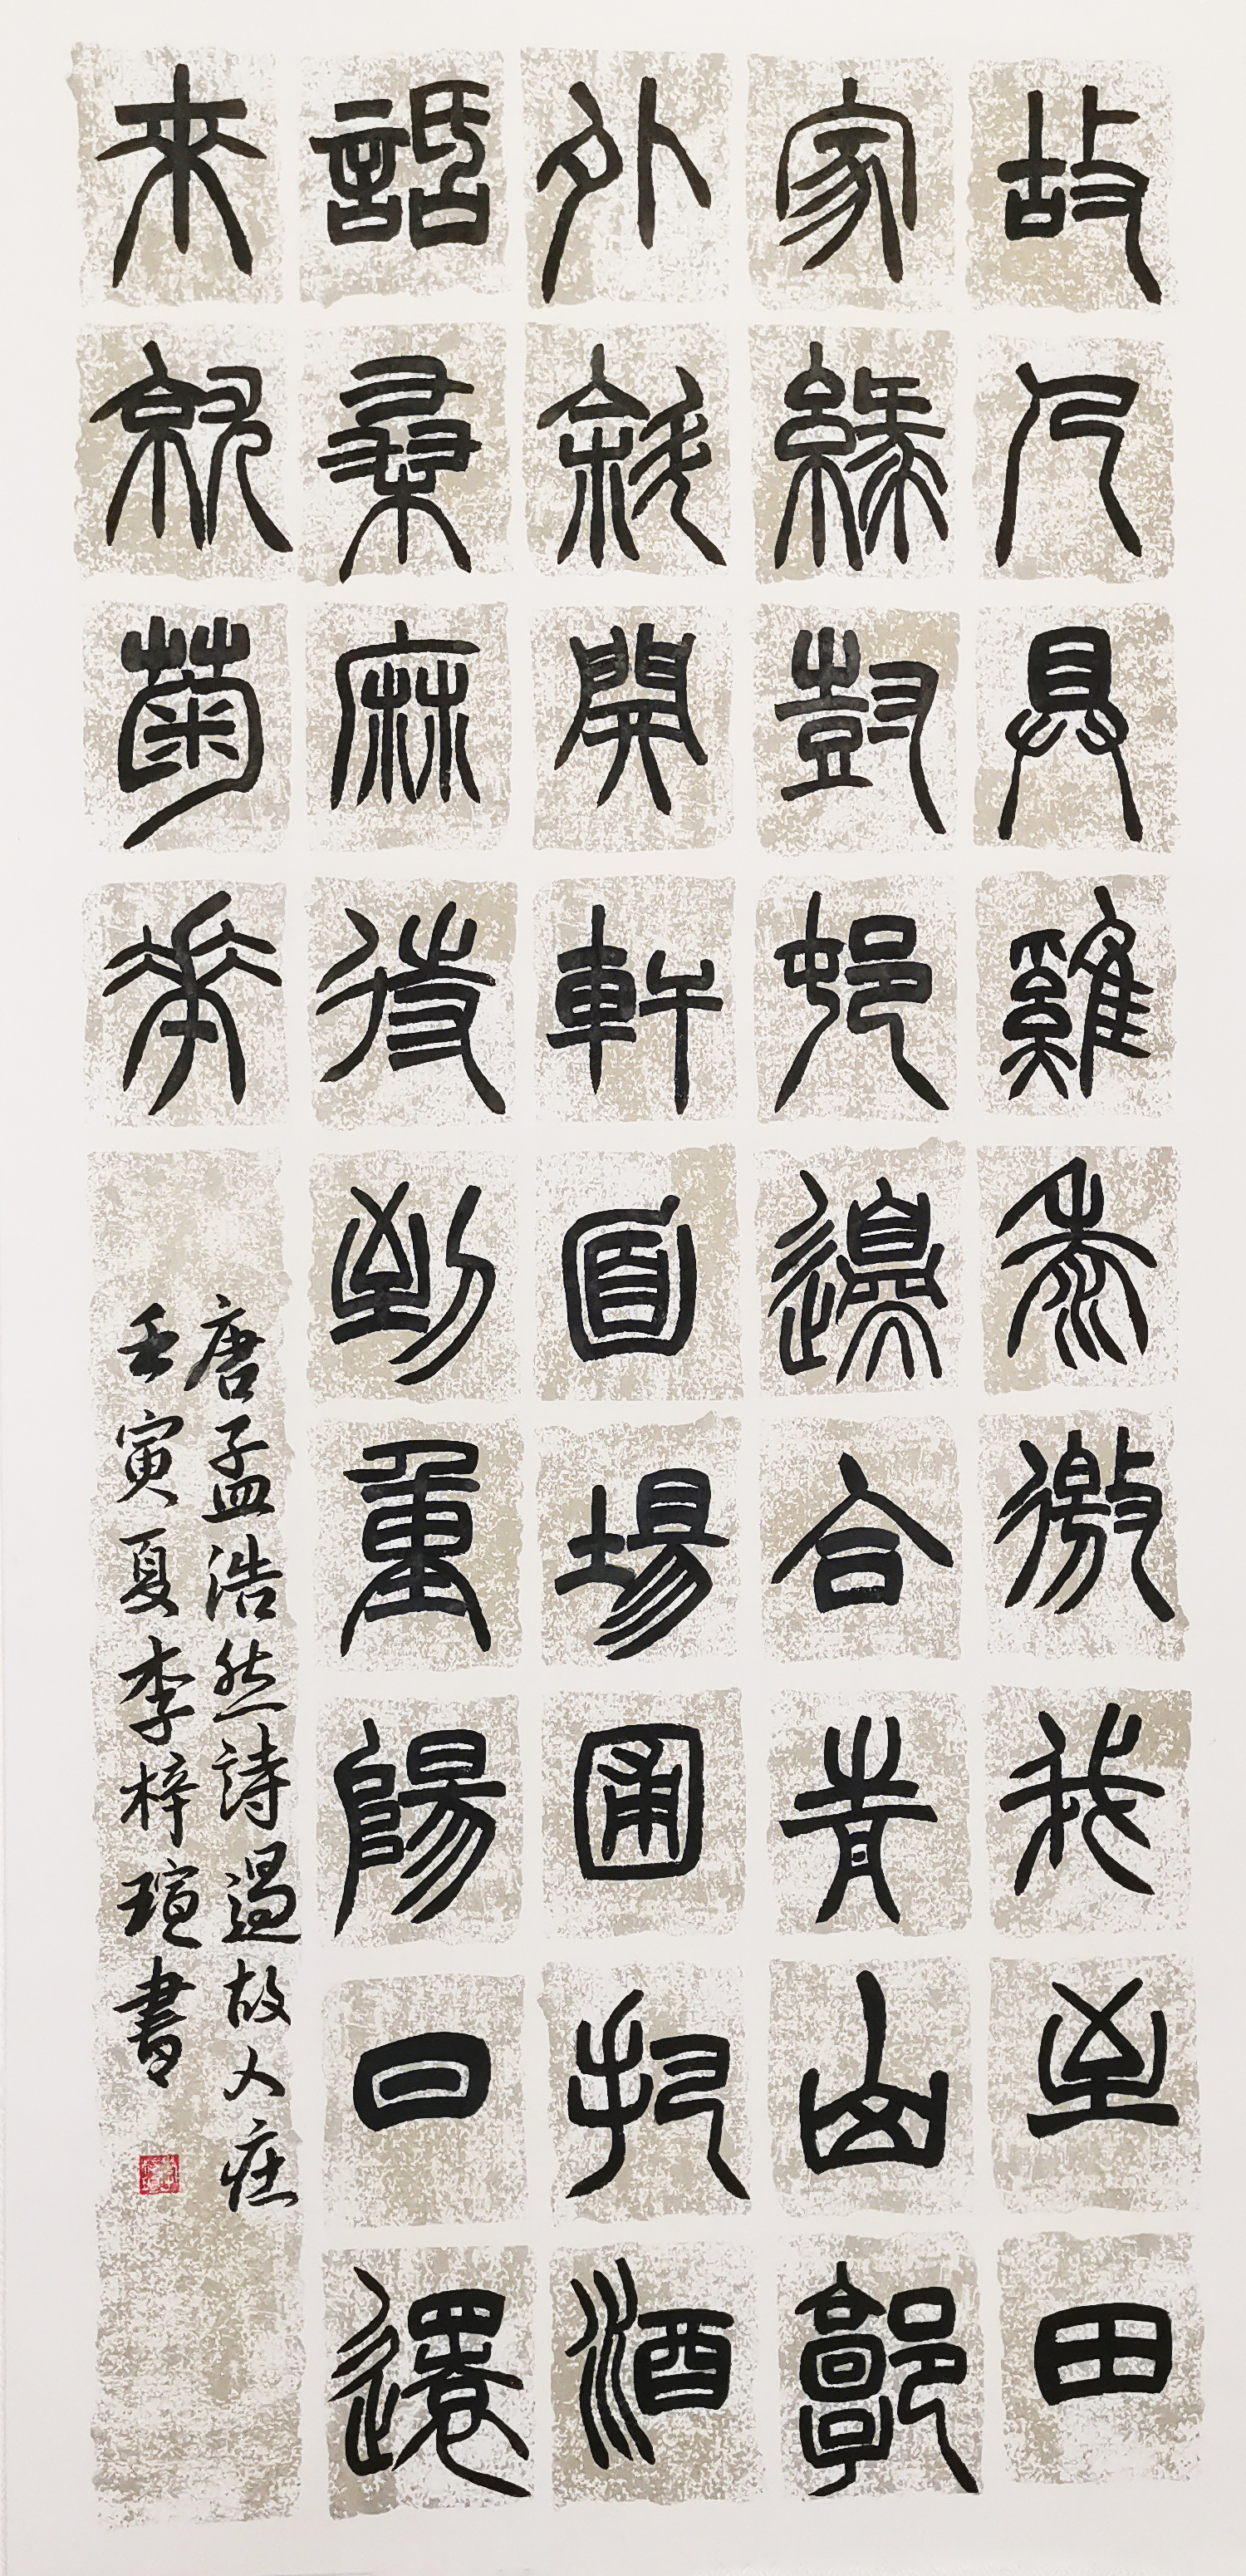 故人具雞黍邀我至田
家綠樹邨邊合青山郭
外斜開軒面場圃把酒
話桑麻待到重陽日還
來就菊花
唐孟浩然詩過故人庄
壬寅夏李梓瑄書